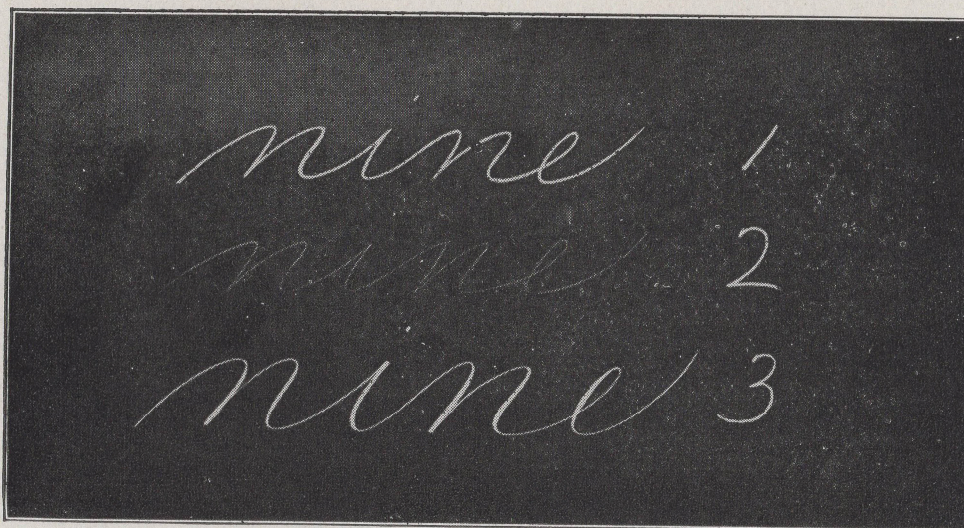 nine 1
nine 2
nine 3